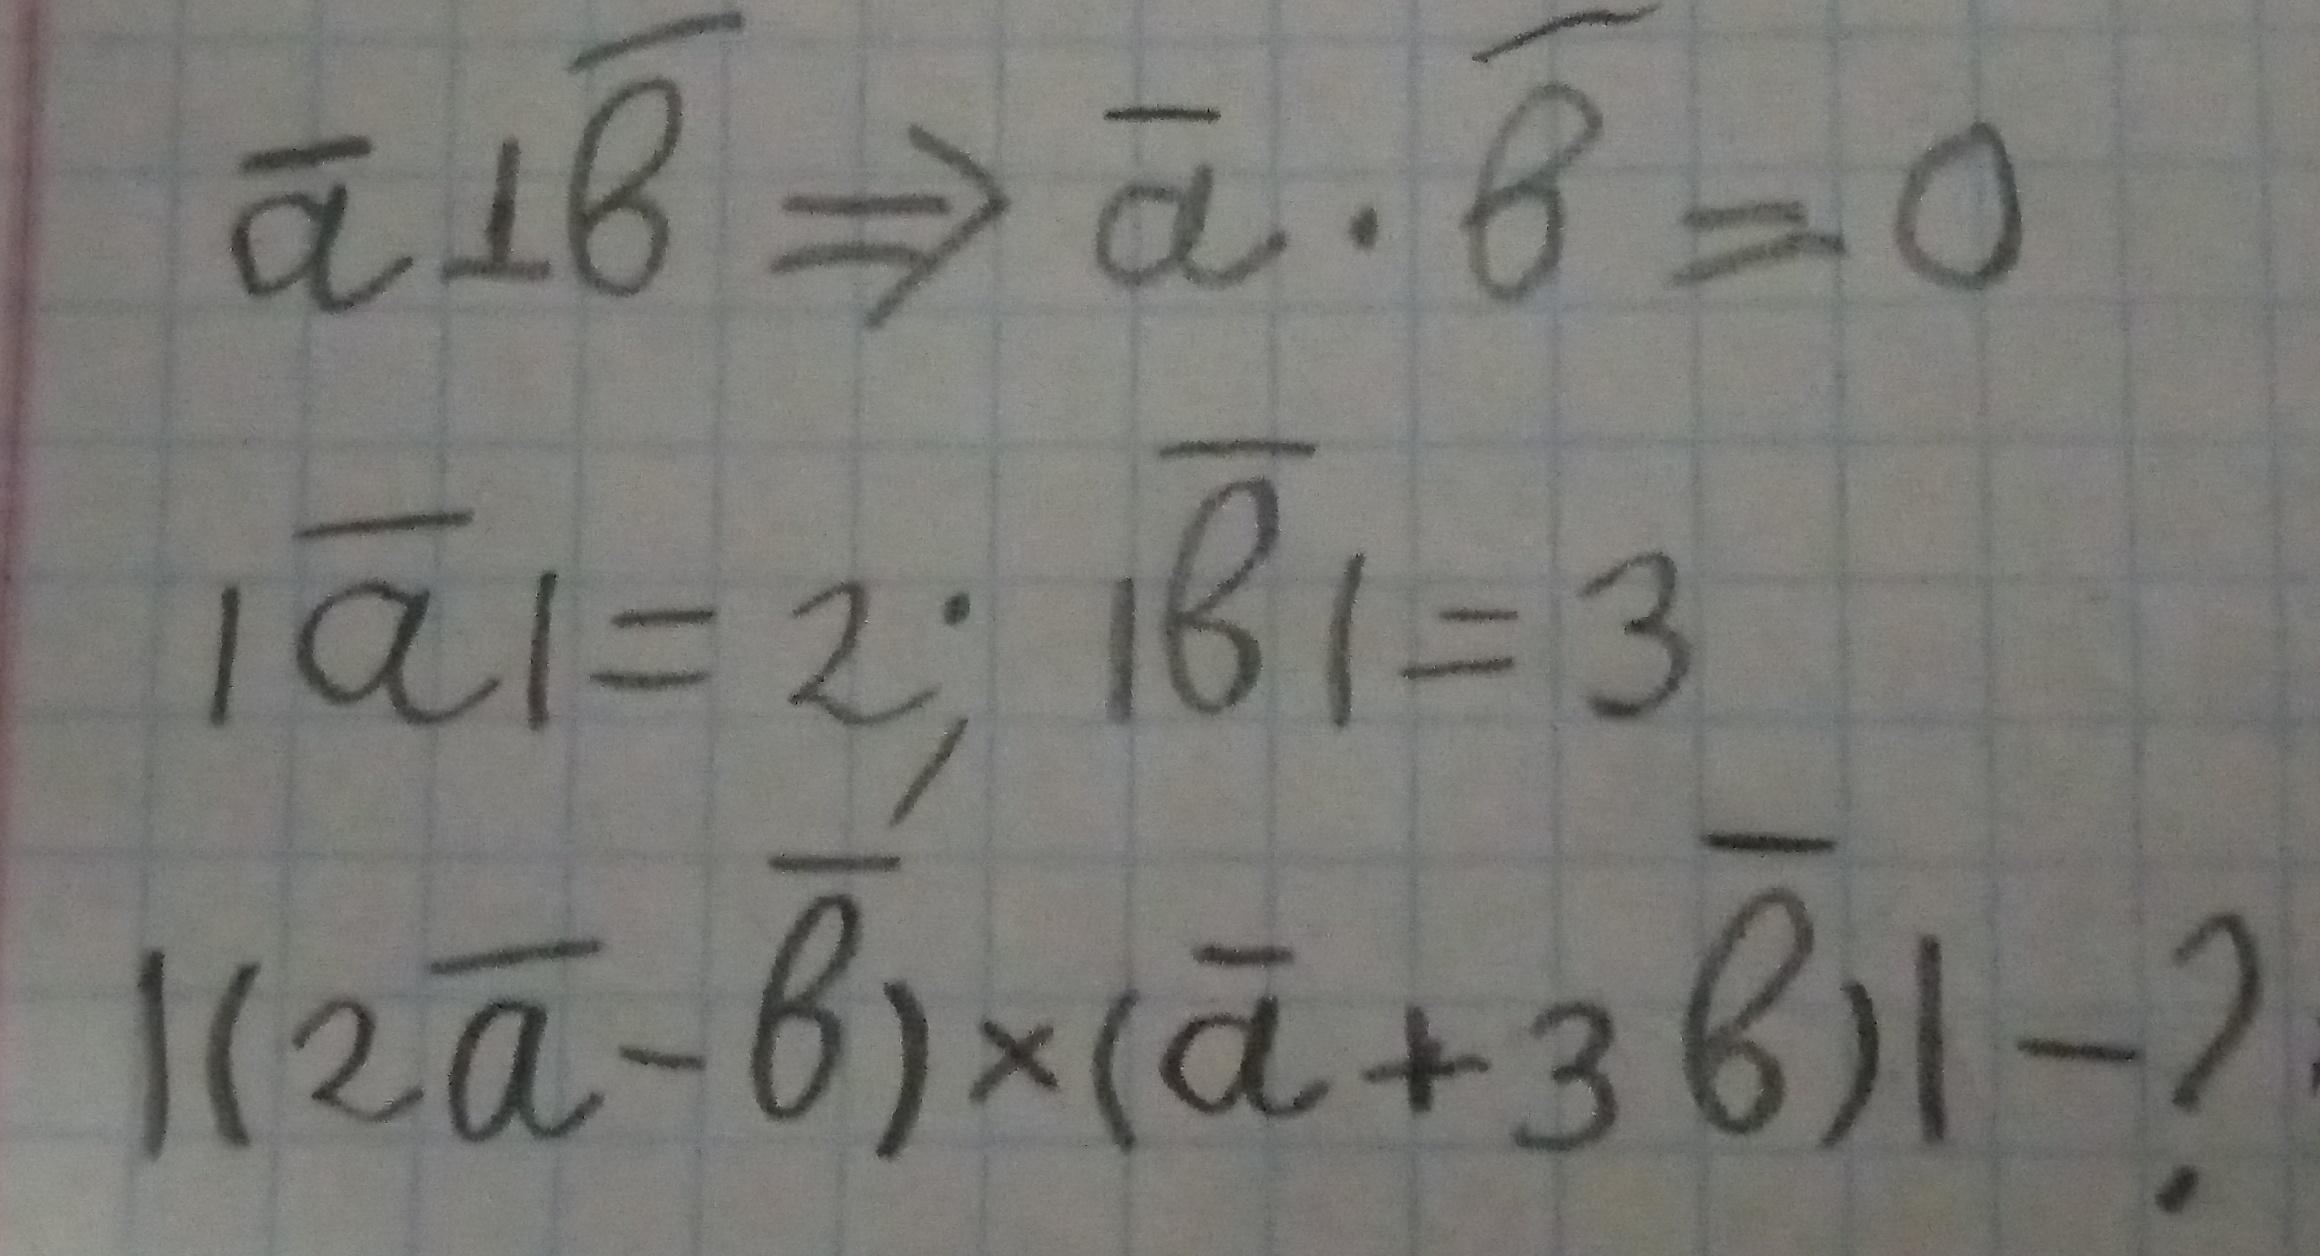 a̅ ⊥ b̅ ⇒ a̅ · b̅ = 0
|a̅| = 2; |b̅| = 3
|(2a̅ - b̅) × (a̅ + 3b̅)| - ?